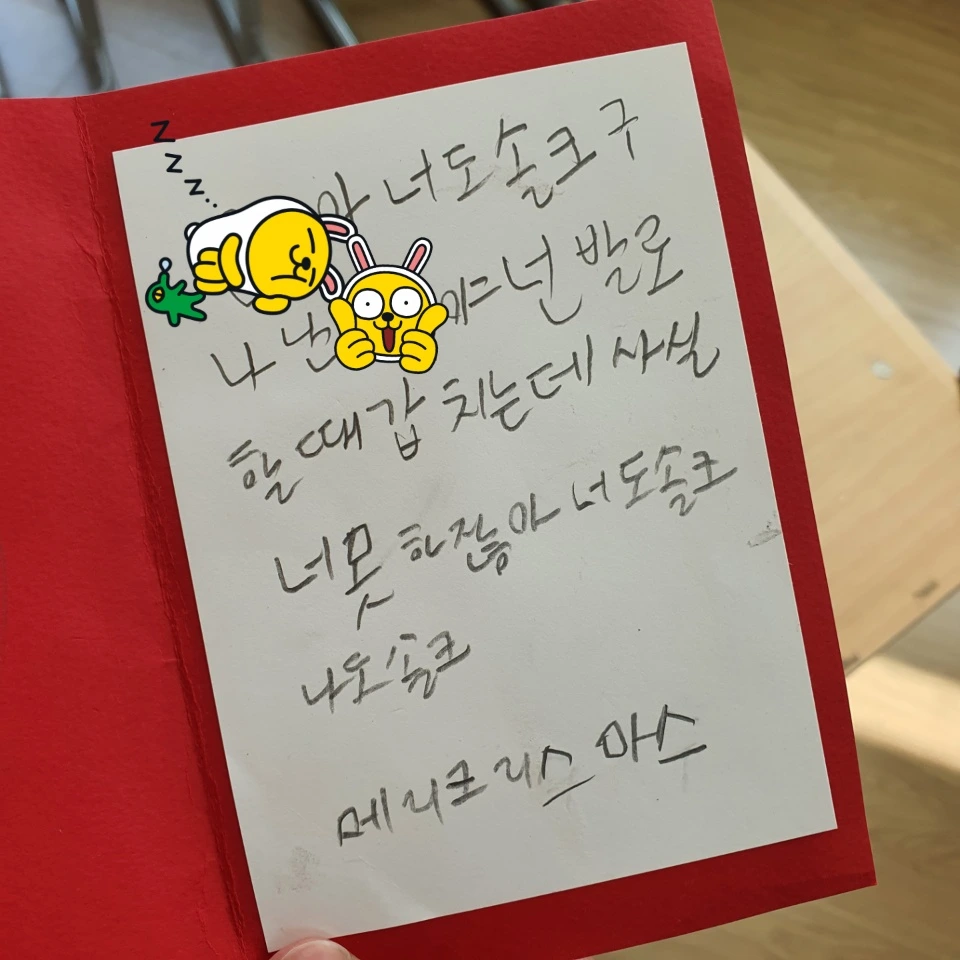 Z
Z
Z..
아 너도 솔크구
나 넌 넌 발로
할 때 갑 치는데 사실
너 못 하잖아 너도 솔크
나도 솔크
메리크리스마스